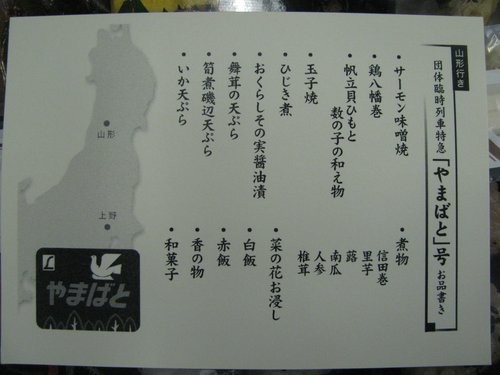 山形行き
団体臨時列車特急「やまばと」号 お品書き
・サーモン味噌焼
・鶏八幡巻
・帆立貝ひもと
数の子の和え物
・玉子焼
・ひじき煮
・おくらしその実醤油漬
・舞茸の天ぷら
・筍煮磯辺天ぷら
・いか天ぷら
・煮物
信田巻
里芋
蕗
南瓜
人参
椎茸
・菜の花お浸し
・白飯
・赤飯
・香の物
・和菓子
山形
上野
L
やまばと